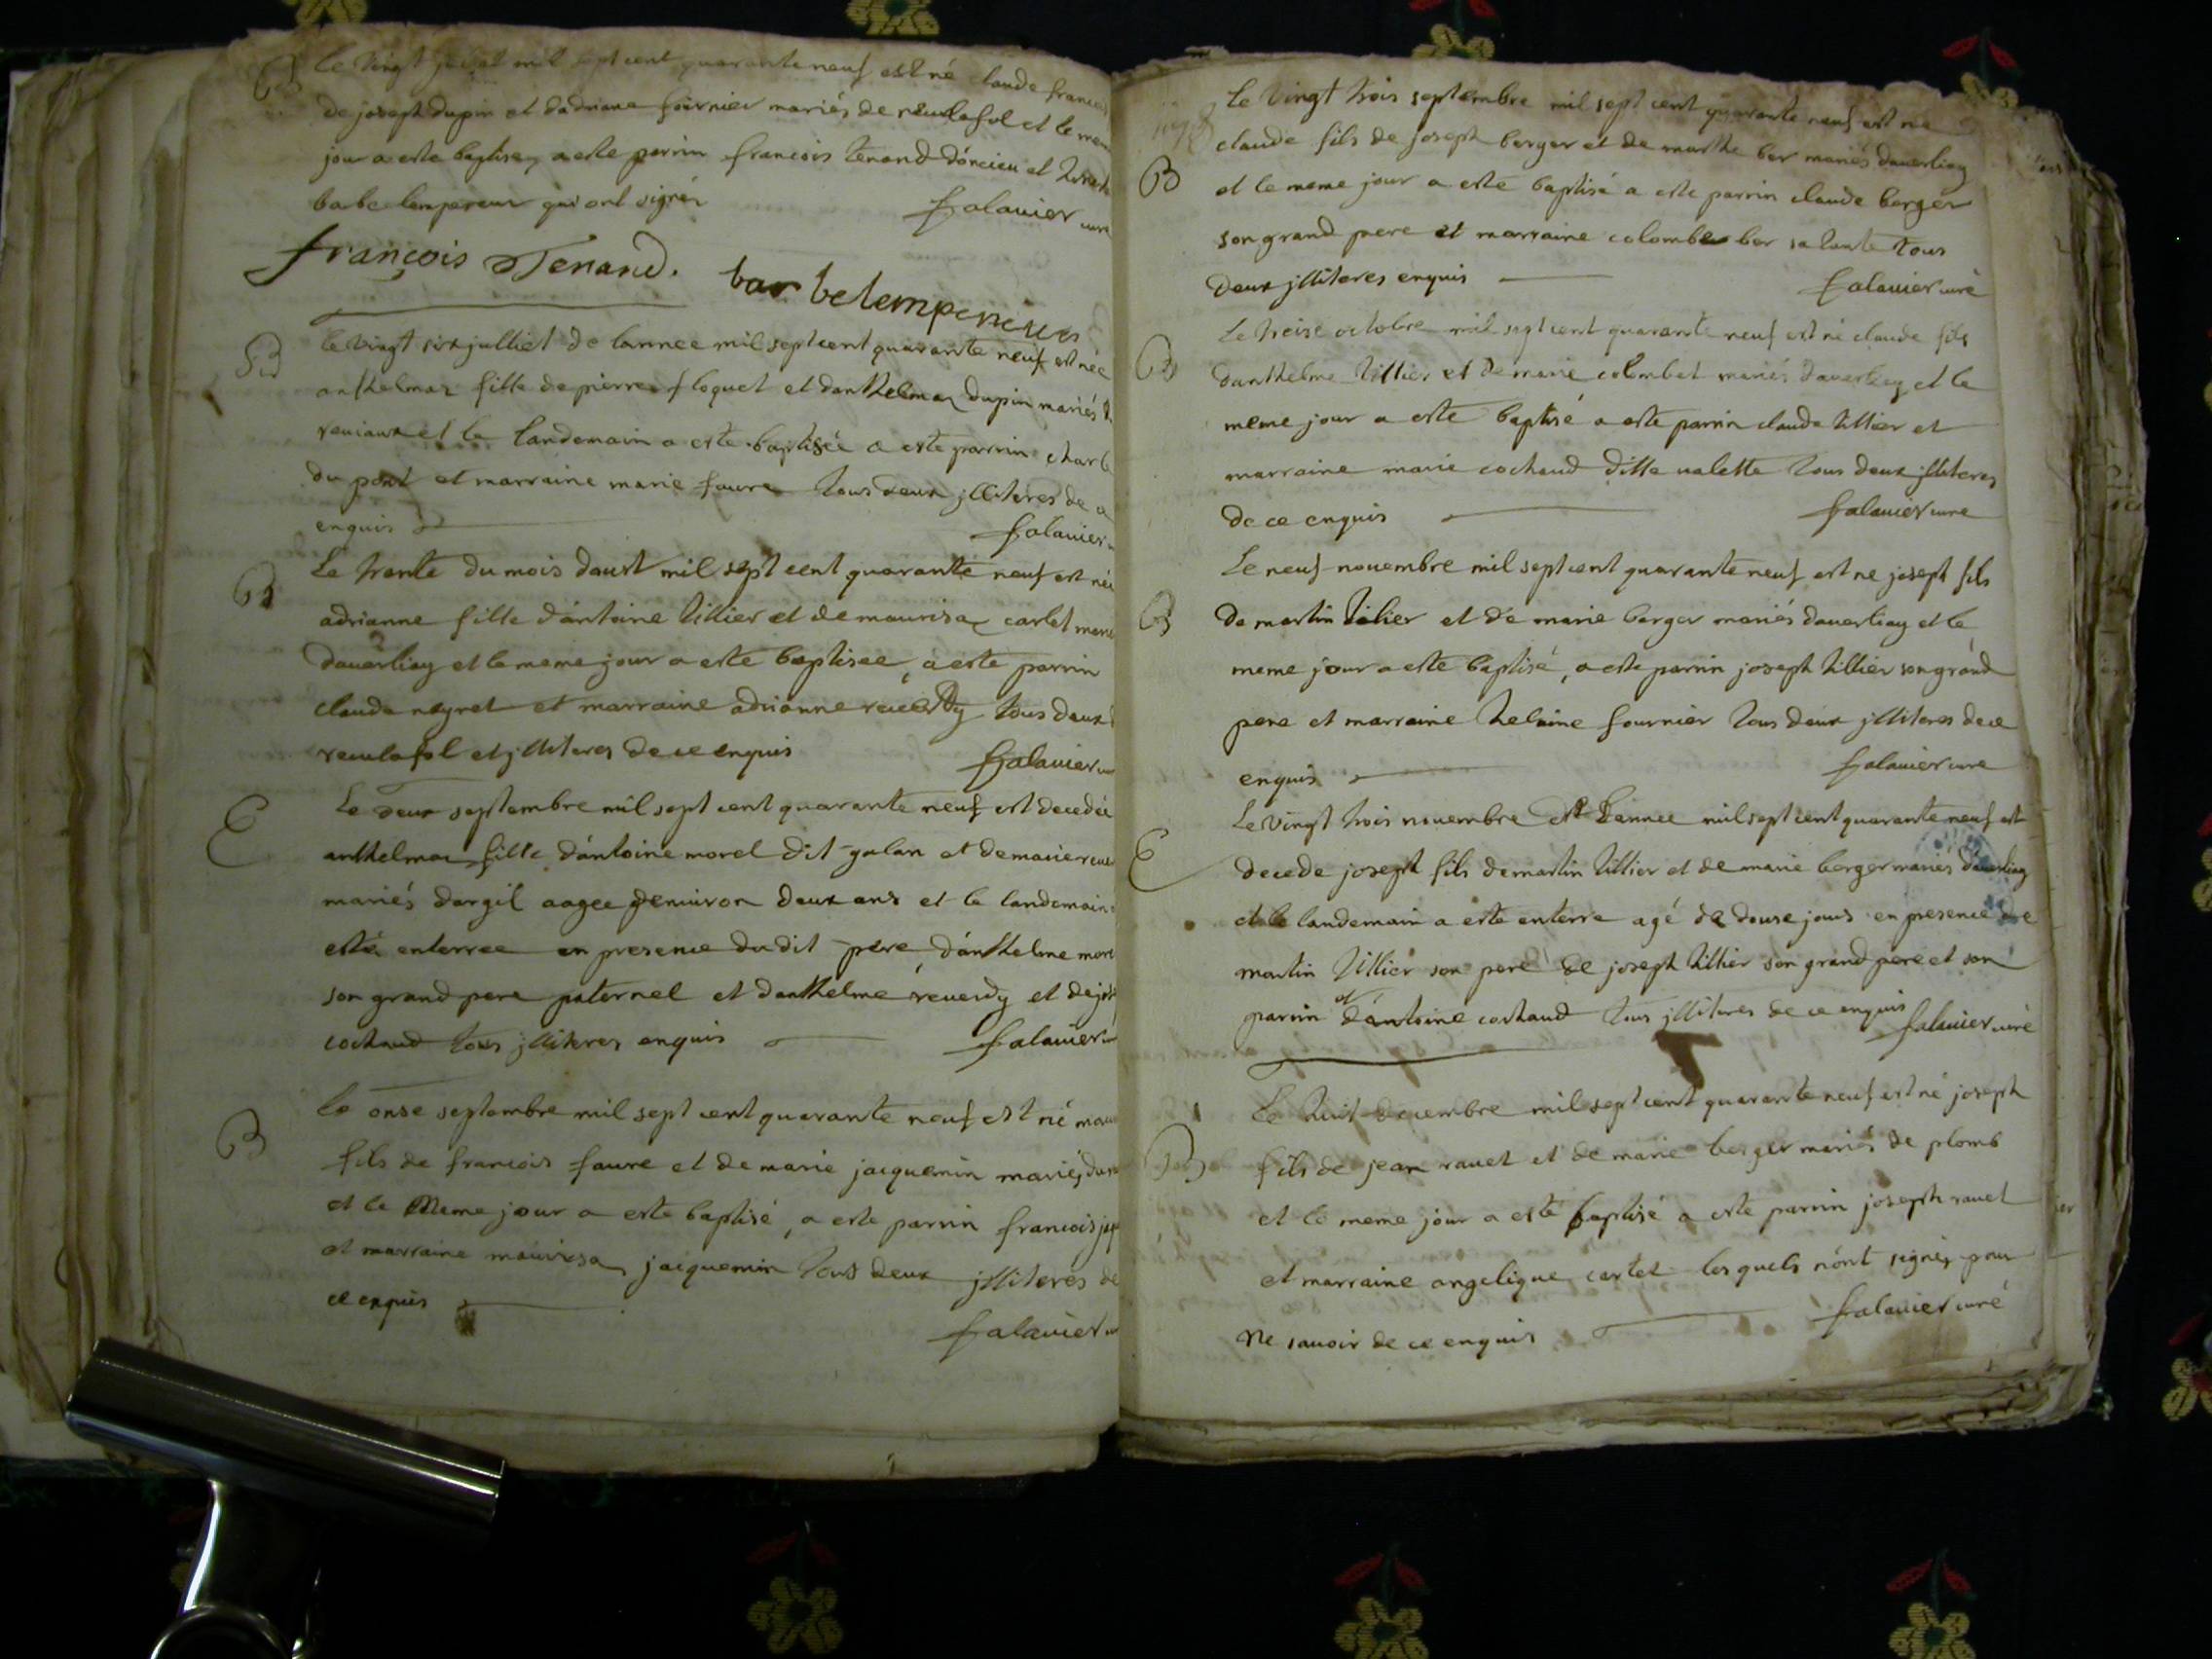 B
Le vingt juillet mil sept cent quarante neuf est né claude francois
de joseph dupin et dadriane fournier mariés de reculafol et le mem
jour a este baptisé, a este parrin francois tenand dóncieu et
babe lempereur qui ont signés
falauier curé
françois Tenand. barbe lempereur
B
le vingt six julliet de lannee mil sept cent quarante neuf est née
anthelmaz fille de pierre floquet et danthelmaz dupin mariés
et le landemain a este baptisée a este parrin charle
du pont et marraine marie faure tous deux jlliteres de
enquis
falauier
B
Le trente du mois daust mil sept cent quarante neuf est née
adrianne fille dántoine tillier et de maurisaz carlet marié
dauerliay et le meme jour a este baptisee, a este parrin
claude neyret et marraine adrianne reuerdy tous deux
reculafol et jlliteres de ce enquis
falauier
E
Le deux septembre mil sept cent quarante neuf est decedée
anthelmaz fille dántoine morel dit galan et de marie
mariés dargil aagee denuiron deux ans et le landemain
esté enterree en presence du dit pere dánthelme morel
son grand pere paternel et danthelme reuerdy et de
cochaud tous jlliteres enquis
falauier
B
Le onse septembre mil sept cent quarante neuf est né
fils de francois faure et de marie jacquemin mariés
et le meme jour a este baptisé, a este parrin francois
et marraine maurisaz jacquemin tous deux jlliteres de
ce enquis
falauier
B
Le vingt trois septembre mil sept cent quarante neuf est né
claude fils de joseph berger et de marthe ber mariés dauerliay
et le meme jour a este baptisé a este parrin claude berger
son grand pere et marraine colombe ber sa tante tous
deux jlliteres enquis
falauier curé
B
Le treise octobre mil sept cent quarante neuf est né claude fils
danthelme tillier et de marie colombet mariés dauerliay et le
meme jour a este baptisé a este parrin claude tillier et
marraine marie cochaud ditte ualette tous deux jlliteres
de ce enquis
falauier curé
B
Le neuf nouembre mil sept cent quarante neuf est ne joseph fils
de martin tilier et dé marie berger mariés dauerliay et le
meme jour a este baptisé, a este parrin joseph tillier son grand
pere et marraine helaine fournier tous deux jlliteres de ce
enquis
falauier curé
E
Le vingt trois nouembre de lannee mil sept cent quarante neuf est
decede joseph fils de martin tillier et de marie berger mariés dauerliay
et le landemain a este enterre agé de douse jours en presence de
martin tillier son pere de joseph tillier son grand pere et son
parrin et dántoine cochaud tous jlliteres de ce enquis
falauier curé
B
Le huit decembre mil sept cent quarante neuf est né joseph
fils de jean rauet et de marie berger mariés de plomb
et le meme jour a esté baptisé a este parrin joseph rauet
et marraine angelique carlet lesquels n'ónt signés pour
ne sauoir de ce enquis
falauier curé